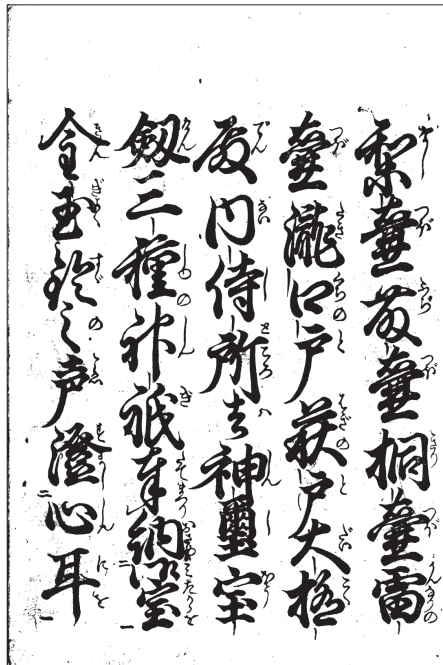 梨壷藤壷桐壷雷
壷瀧口戸萩戸大極
殿内侍所者神璽宝
剱三種神祇奉納御宝
金玉鈴之声澄心耳